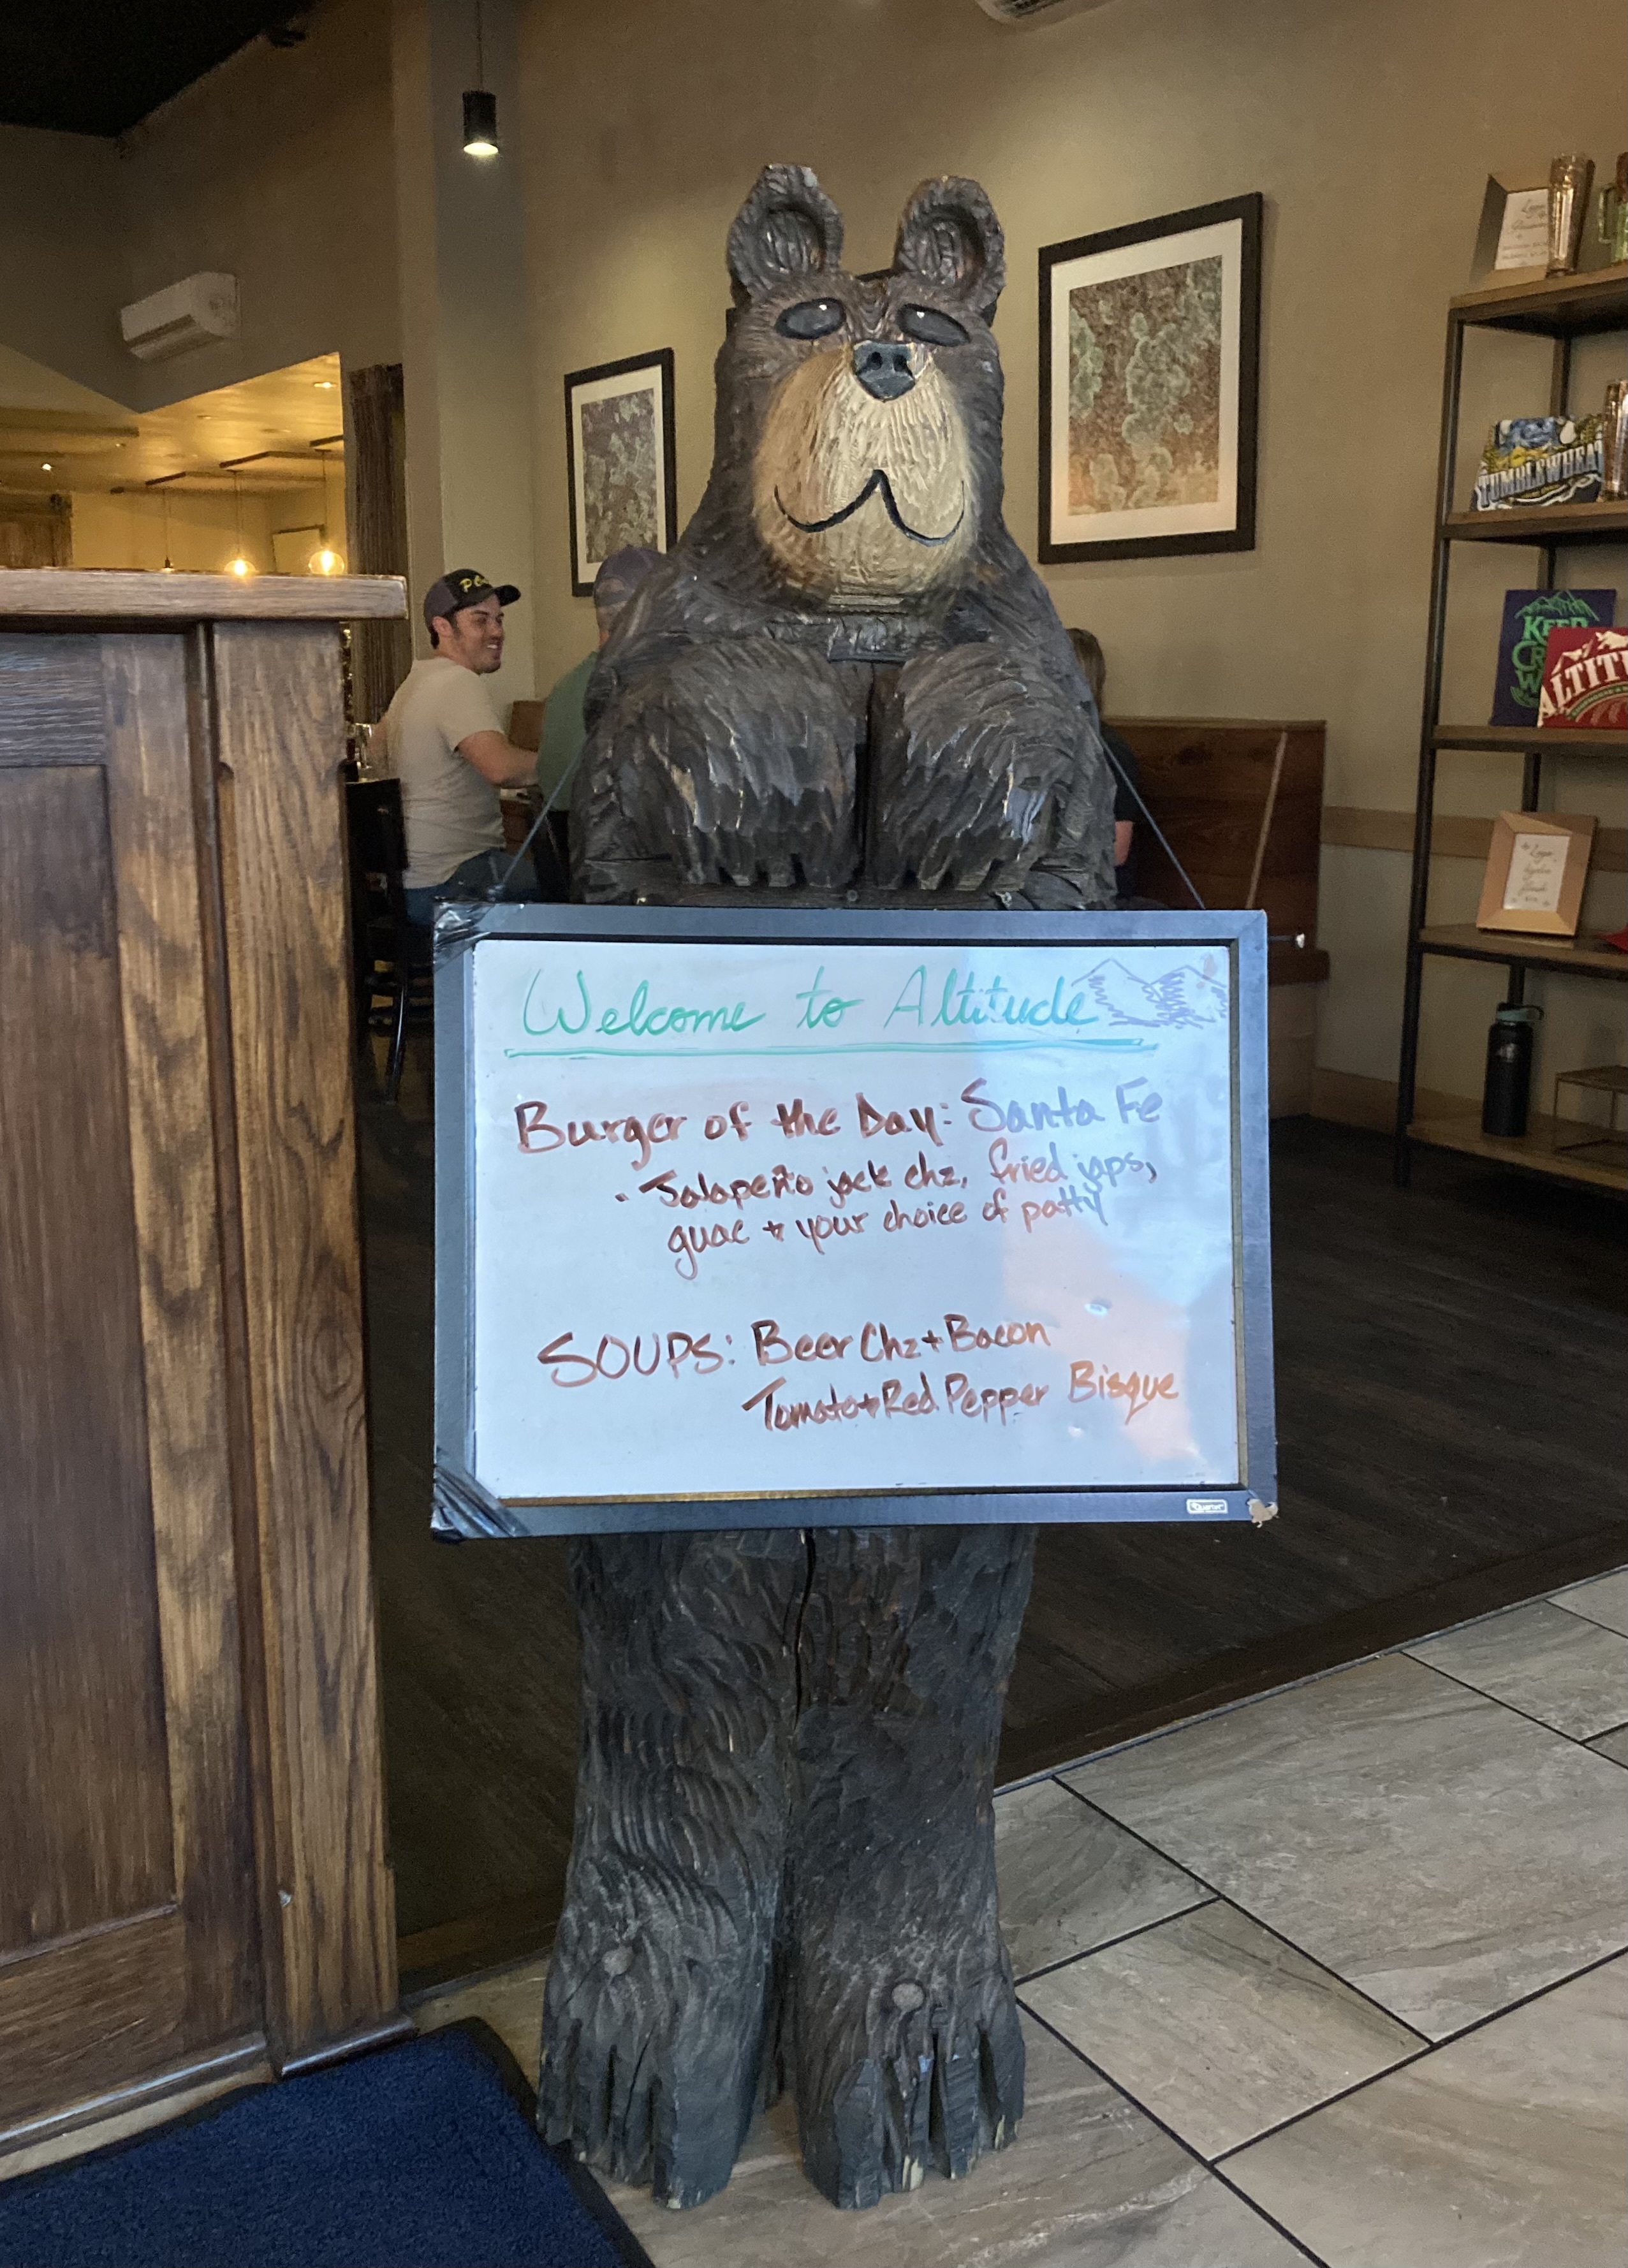 Welcome to Altitude
Burger of the Day: Santa Fe
• Jalapeño jack chz, fried japs,
guac + your choice of patty
SOUPS: Beer Chz + Bacon
Tomato + Red Pepper Bisque
Quartet
TUMBLEWHEAT
KEEP
ALTITU